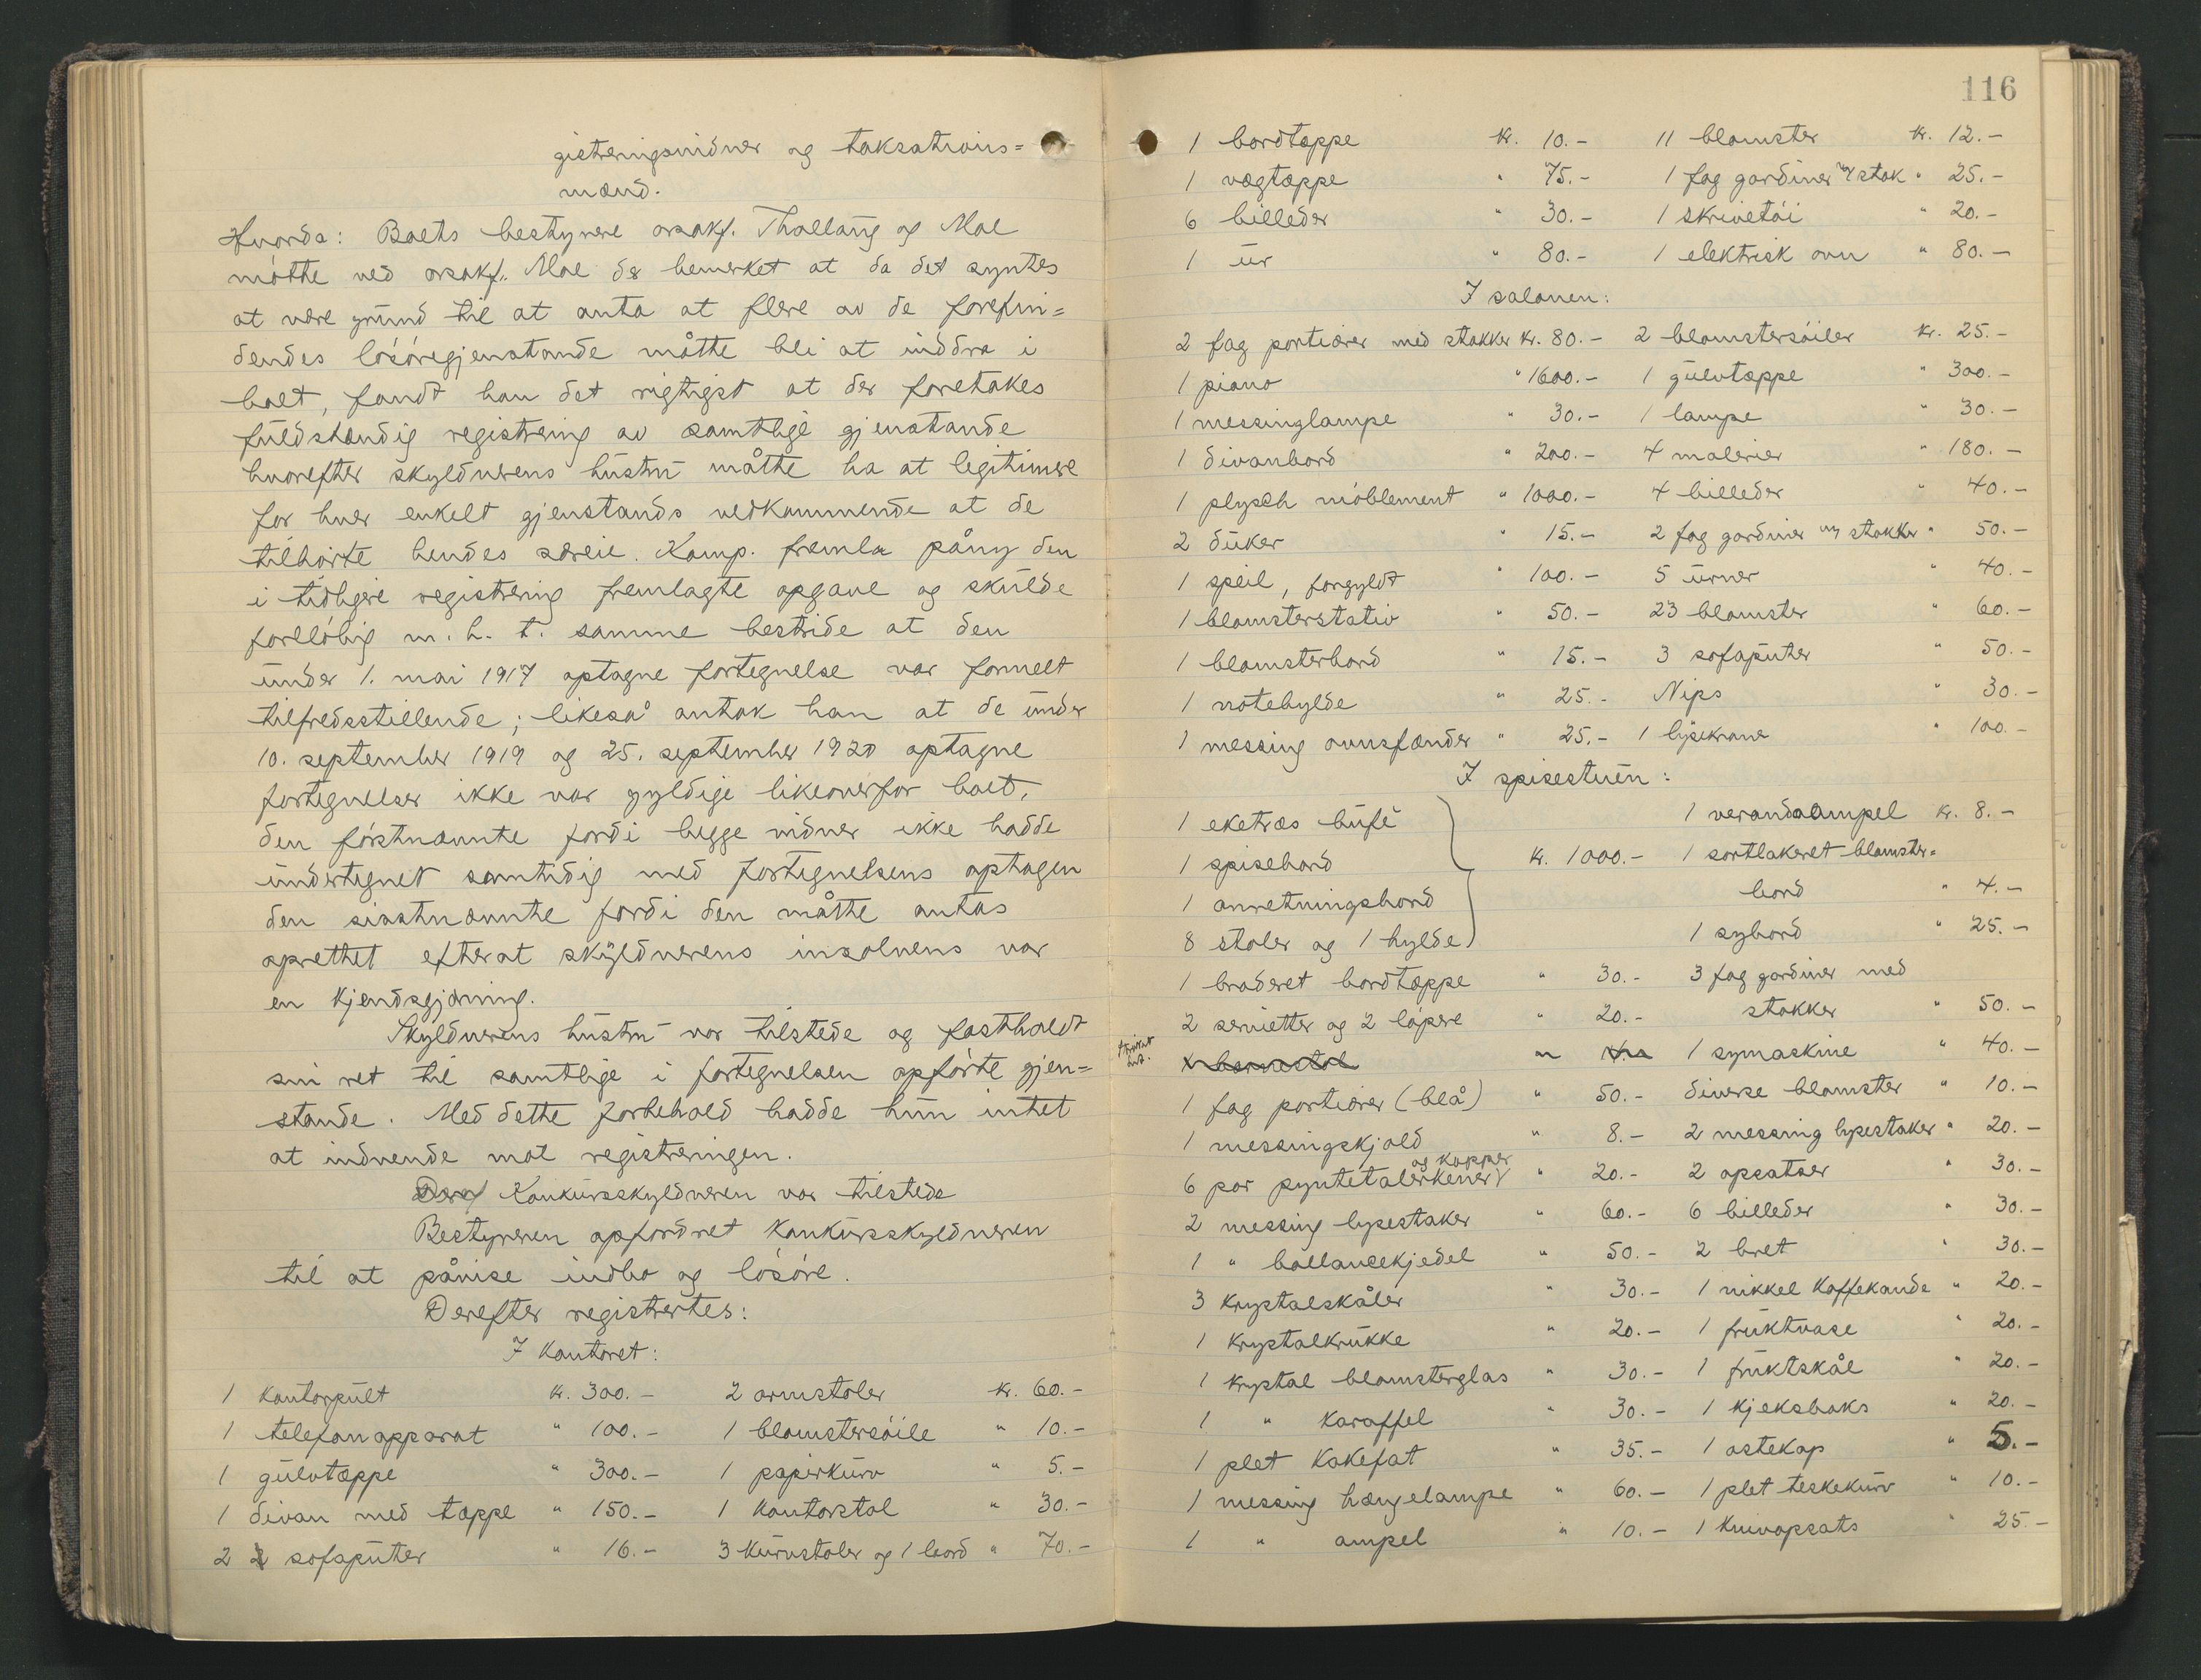 gistreringsvidner og taksations=
mænd.
Hvorda: Boets bestyrere orsakf. Thallaug og Moe
møtte ved orsakf. Moe der bemerket at da det syntes
at være grund til at anta at flere av de forefin=
dendes løsøregjenstande måtte bli at inddra i
boet, fandt han det rigtigst at der foretakes
fuldstændig registrering av samtlige gjenstande
hvorefter skyldnerens hustru måtte ha at legitimere
for hver enkelt gjenstands vedkommende at de
tilhørte hendes særeie. Komp. fremla påny den
i tidligere registrering fremlagte opgave og skulde
foreløbig m. h. t. samme bestride at den
under 1. mai 1917 optagne fortegnelse var formelt
tilfredsstillende; likeså antok han at de under
10. september 1919 og 25. september 1920 optagne
fortegnelser ikke var gyldige likeoverfor boet,
den førstnævnte fordi begge vidner ikke hadde
undertegnet samtidig med fortegnelsens optagen
den sisstnævnte fordi den måtte antas
oprettet efterat skyldnerens insolvens var
en kjendsgjerning.
Skyldnerens hustru var tilstede og fastholdt
sin ret til samtlige i fortegnelsen opførte gjen=
stande. Med dette forbehold hadde hun intet
at indvende mot registreringen.
Konkursskyldneren var tilstede
Bestyreren opfordret konkursskyldneren
til at påvise indbo og løsøre.
Derefter registrertes:
I kontoret:
1 kontorpult kr. 300.- 2 armstoler kr. 60.-
1 telefonapparat " 100.- 1 blomstersøile " 10.-
1 gulvtæppe " 300.- 1 papirkurv " 5.-
1 divan med tæppe " 150.- 1 kontorstol " 30.-
2 sofaputer " 16.- 3 kurvstoler og 1 bord " 70.-
116
1 bordtæppe kr. 10.- 11 blomster kr. 12.-
1 vægtæppe " 75.- 1 fag gardiner m/ stok " 25.-
6 billeder " 30.- 1 skrivetøi " 20.-
1 ur " 80.- 1 elektrisk ovn " 80.-
I salonen:
2 fag portierer med stokker kr. 80.- 2 blomstersøiler kr. 25.-
1 piano " 1600.- 1 gulvtæppe " 300.-
1 messinglampe " 30.- 1 lampe " 30.-
1 divanbord " 200.- 4 malerier " 180.-
1 plysch møblement " 1000.- 4 billeder " 40.-
2 duker " 15.- 2 fag gardiner m/ stokker " 50.-
1 speil, forgyldt " 100.- 5 urner " 40.-
1 blomsterstativ " 50.- 23 blomster " 60.-
1 blomsterbord " 15.- 3 sofaputer " 50.-
1 notehylde " 25.- Nips " 30.-
1 messing ovnsfænder " 25.- 1 lysekrone " 100.-
I spisestuen:
1 eketræs bufè 1 verandaampel kr. 8.-
1 spisebord kr. 1000.- 1 sortlakeret blomster=
1 anretningsbord bord " 4.-
8 stoler og 1 hylde 1 sybord " 25.-
1 broderet bordtæppe " 30.- 3 fag gardiner med
2 servietter og 2 løpere " 20.- stokker " 50.-
1 barnestol " 1 symaskine " 40.-
1 fag portierer (blå) " 50.- diverse blomster " 10.-
1 messingskjold " 8.- 2 messing lysestaker " 20.-
6 par pyntetalerkener og kopper " 20.- 2 opsatser " 30.-
2 messing lysestaker " 60.- 6 billeder " 30.-
1 " ballancekjedel " 50.- 2 bret " 30.-
3 krystalskåler " 30.- 1 nikkel kaffekande " 20.-
1 krystalkrukke " 20.- 1 fruktvase " 20.-
1 krystal blomsterglas " 30.- 1 fruktskål " 20.-
1 " karaffel " 30.- 1 kjeksboks " 20.-
1 plet kakefat " 35.- 1 ostekop " 5.-
1 messing hængelampe " 60.- 1 plet teskekurv " 10.-
1 " ampel " 10.- 1 knivopsats " 25.-